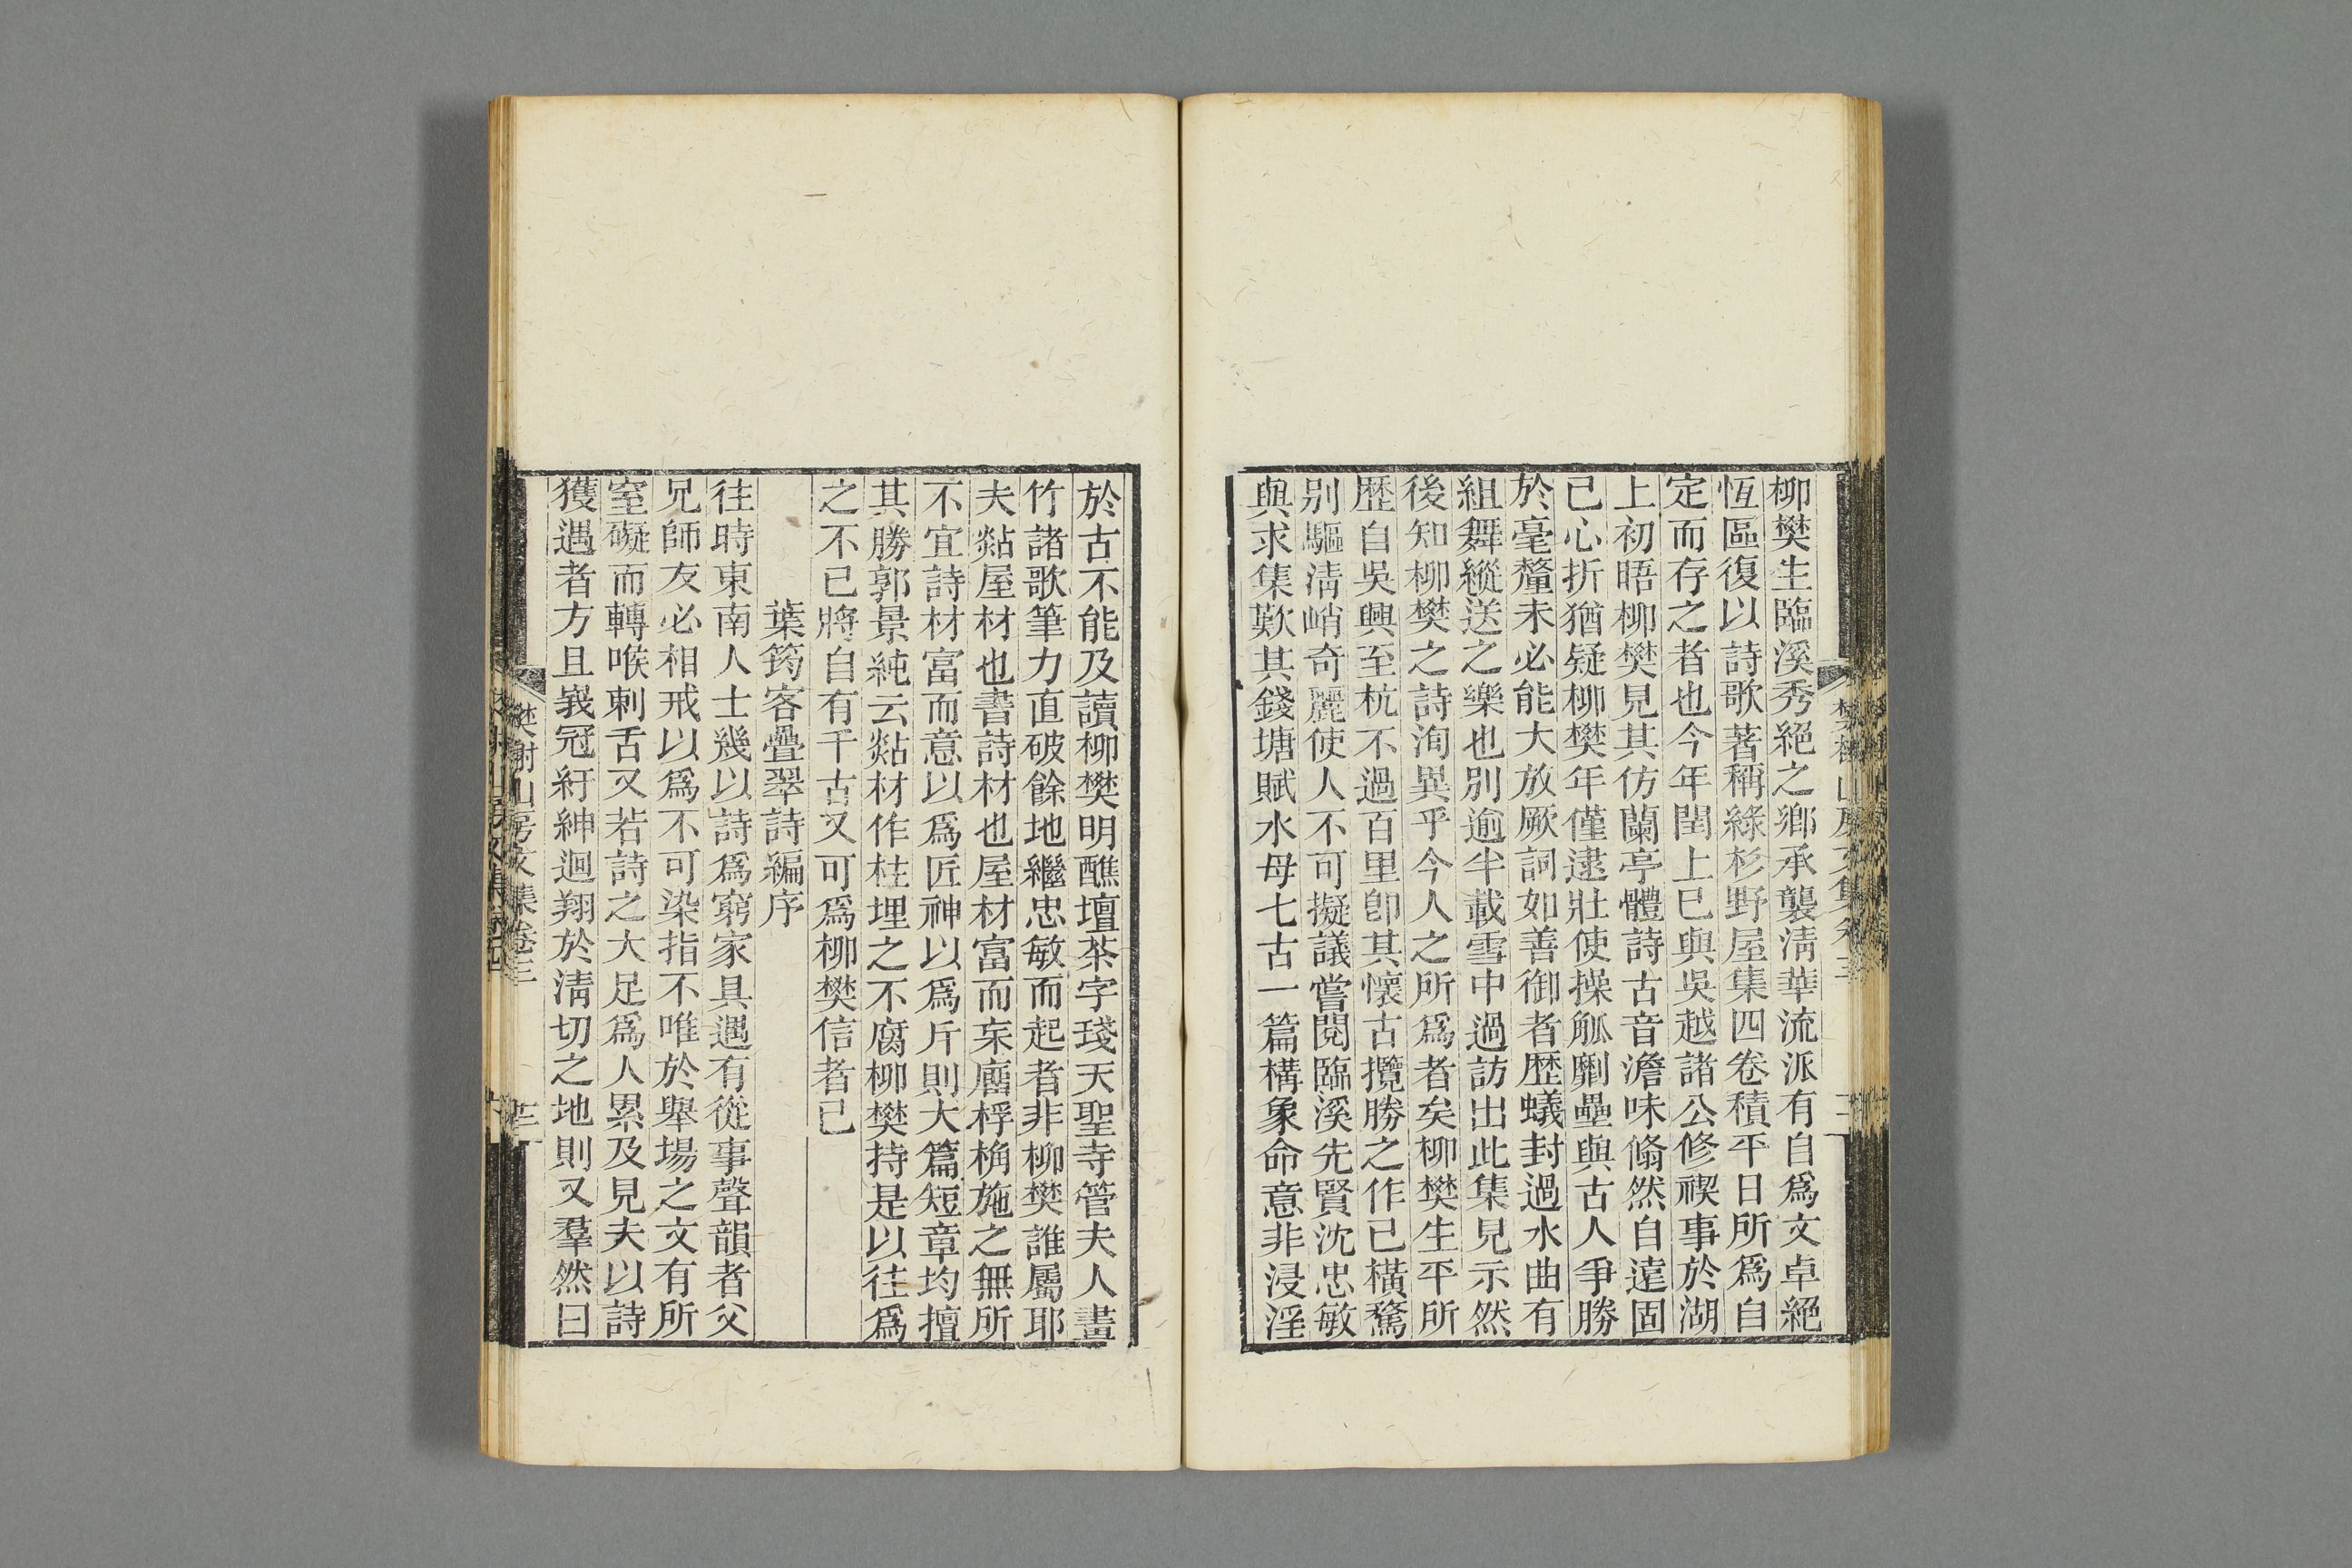 柳樊生臨溪秀絕之鄉承襲淸華流派有自爲文卓絕
恆區復以詩歌著稱綠杉野屋集四卷積平日所爲自
定而存之者也今年閏上巳與吳越諸公修禊事於湖
上初晤柳樊見其仿蘭亭體詩古音澹味翛然自遠固
已心折猶疑柳樊年僅逮壯使操觚劘壘與古人爭勝
於毫釐未必能大放厥詞如善御者歷蟻封過水曲有
組舞縱送之樂也別逾半載雪中過訪出此集見示然
後知柳樊之詩洵異乎今人之所爲者矣柳樊生平所
歷自吳興至杭不過百里卽其懷古攬勝之作已橫騖
別驅淸峭奇麗使人不可擬議嘗閱臨溪先賢沈忠敏
與求集歎其錢塘賦水母七古一篇構象命意非浸淫
於古不能及讀柳樊明醮壇茶字琖天聖寺管夫人畫
竹諸歌筆力直破餘地繼忠敏而起者非柳樊誰屬耶
夫㸃屋材也書詩材也屋材富而杗廇桴桷施之無所
不宜詩材富而意以爲匠神以爲斤則大篇短章均擅
其勝郭景純云㸃材作柱埋之不腐柳樊持是以往爲
之不已將自有千古又可爲柳樊信者已
葉筠客疊翠詩編序
往時東南人士幾以詩爲窮家具遇有從事聲韻者父
兄師友必相戒以爲不可染指不唯於舉場之文有所
窒礙而轉喉刺舌又若詩之大足爲人累及見夫以詩
獲遇者方且峩冠紆紳迴翔於淸切之地則又羣然曰
樊榭山房文集卷三